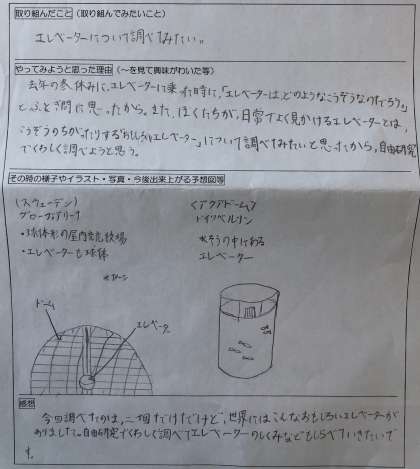 取り組んだこと（取り組んでみたいこと）
エレベーターについて調べてみたい。
やってみようと思った理由（～を見て興味がわいた等）
去年の冬休みに、エレベーターに乗った時に、「エレベーターは、どのようなこうぞうなのだろう。」
とふと疑問に思ったから。また、ぼくたちが、日常でよく見かけるエレベーターとは、
こうぞうのちがったりする「おもしろエレベーター」について調べてみたいと思ったから、自由研究
でくわしく調べようと思う。
その時の様子やイラスト・写真・今後出来上がる予想図等
（スウェーデン）
グローブアリーナ
・球体形の屋内競技場
・エレベーターも球体
〈アクアドーム〉
ドイツベルリン
水そうの中にある
エレベーター
ドーム
エレベーター
感想
今回調べたのは、二個だけだけど、世界にはこんなおもしろいエレベーターが
ありました。自由研究でくわしく調べてエレベーターのしくみなどもしらべていきたいで
す。